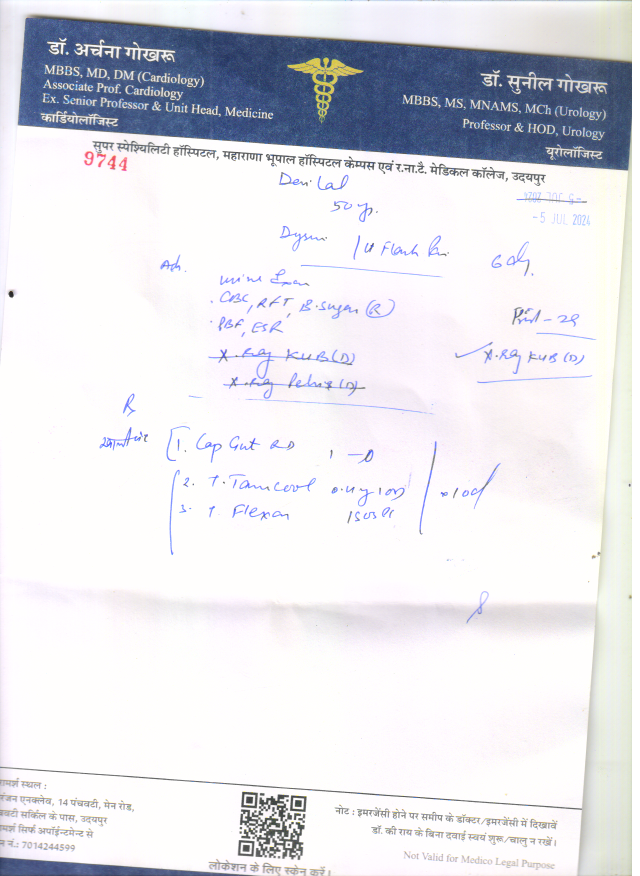 डॉ. अर्चना गोखरू
MBBS, MD, DM (Cardiology)
Associate Prof. Cardiology
Ex. Senior Professor & Unit Head, Medicine
कार्डियोलॉजिस्ट
डॉ. सुनील गोखरू
MBBS, MS, MNAMS, MCh (Urology)
Professor & HOD, Urology
यूरोलॉजिस्ट
सुपर स्पेश्यिलिटी हॉस्पिटल, महाराणा भूपाल हॉस्पिटल केम्पस एवं र.ना.टै. मेडिकल कॉलेज, उदयपुर
9744
Devi Lal
50 yr.
-5 JUL 2024
Adv.
urine Exam
. CBC, RFT, B. sugar (R)
. PBF, ESR
X. Ray KUB (D)
X. Ray Pelvis (D)
X. Ray KUB (D)
Rx
1. Cap Gut RD 1-0
2. T. Tamcool 0.4 mg 1 OD
3. T. Flexon
x 10d
रंजन एनक्लेव, 14 पंचवटी, मेन रोड,
सर्किल के पास, उदयपुर
सिर्फ अपॉईन्टमेन्ट से
न नं.: 7014244599
लोकेशन के लिए स्केन करें।
नोट : इमरजेंसी होने पर समीप के डॉक्टर/इमरजेंसी में दिखावें
डॉ. की राय के बिना दवाई स्वयं शुरू/चालु न रखें।
Not Valid for Medico Legal Purpose